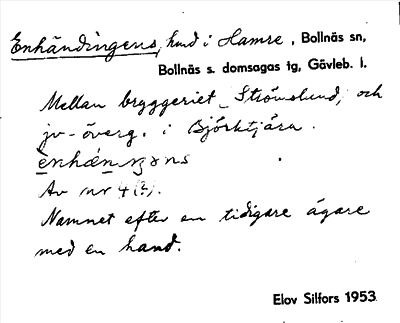 Enhändingens, hmd i Hamre, Bollnäs sn,
Bollnäs s. domsagas tg, Gävleb. l.
Mellan bryggeriet, Strömslund, och
jv-överg. i Björktjära.
ènhæ̀nŋəns
Av nr 4 (?).
Namnet efter en tidigare ägare
med en hand.
Elov Silfors 1953